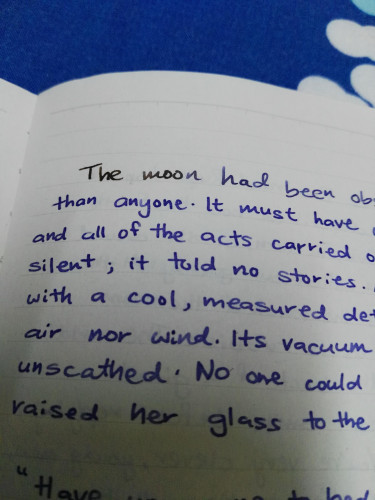 The moon had been
than anyone. It must have
and all of the acts carried
silent; it told no stories.
with a cool, measured
air nor wind. Its vacuum
unscathed. No one could
raised her glass to the
"Have